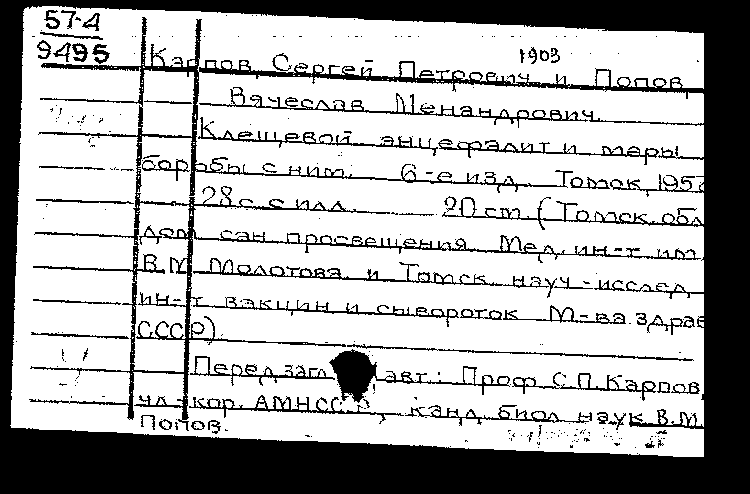 57-4
9495
1903
Карпов, Сергей Петрович и Попов,
Вячеслав Менандрович.
Клещевой энцефалит и меры
борьбы с ним. 6-е изд. Томск, 195
28 с. с илл. 20 cm. (Томск. обл.
дом сан. просвещения. Мед. ин-т им.
В.М. Молотова и Томск. науч-исслед.
ин-т вакцин и сывороток М-ва здрав
СССР).
Перед загл. авт.: Проф. С.П. Карпов,
чл-кор. АМН СССР, канд. биол. наук В.М.
Попов.